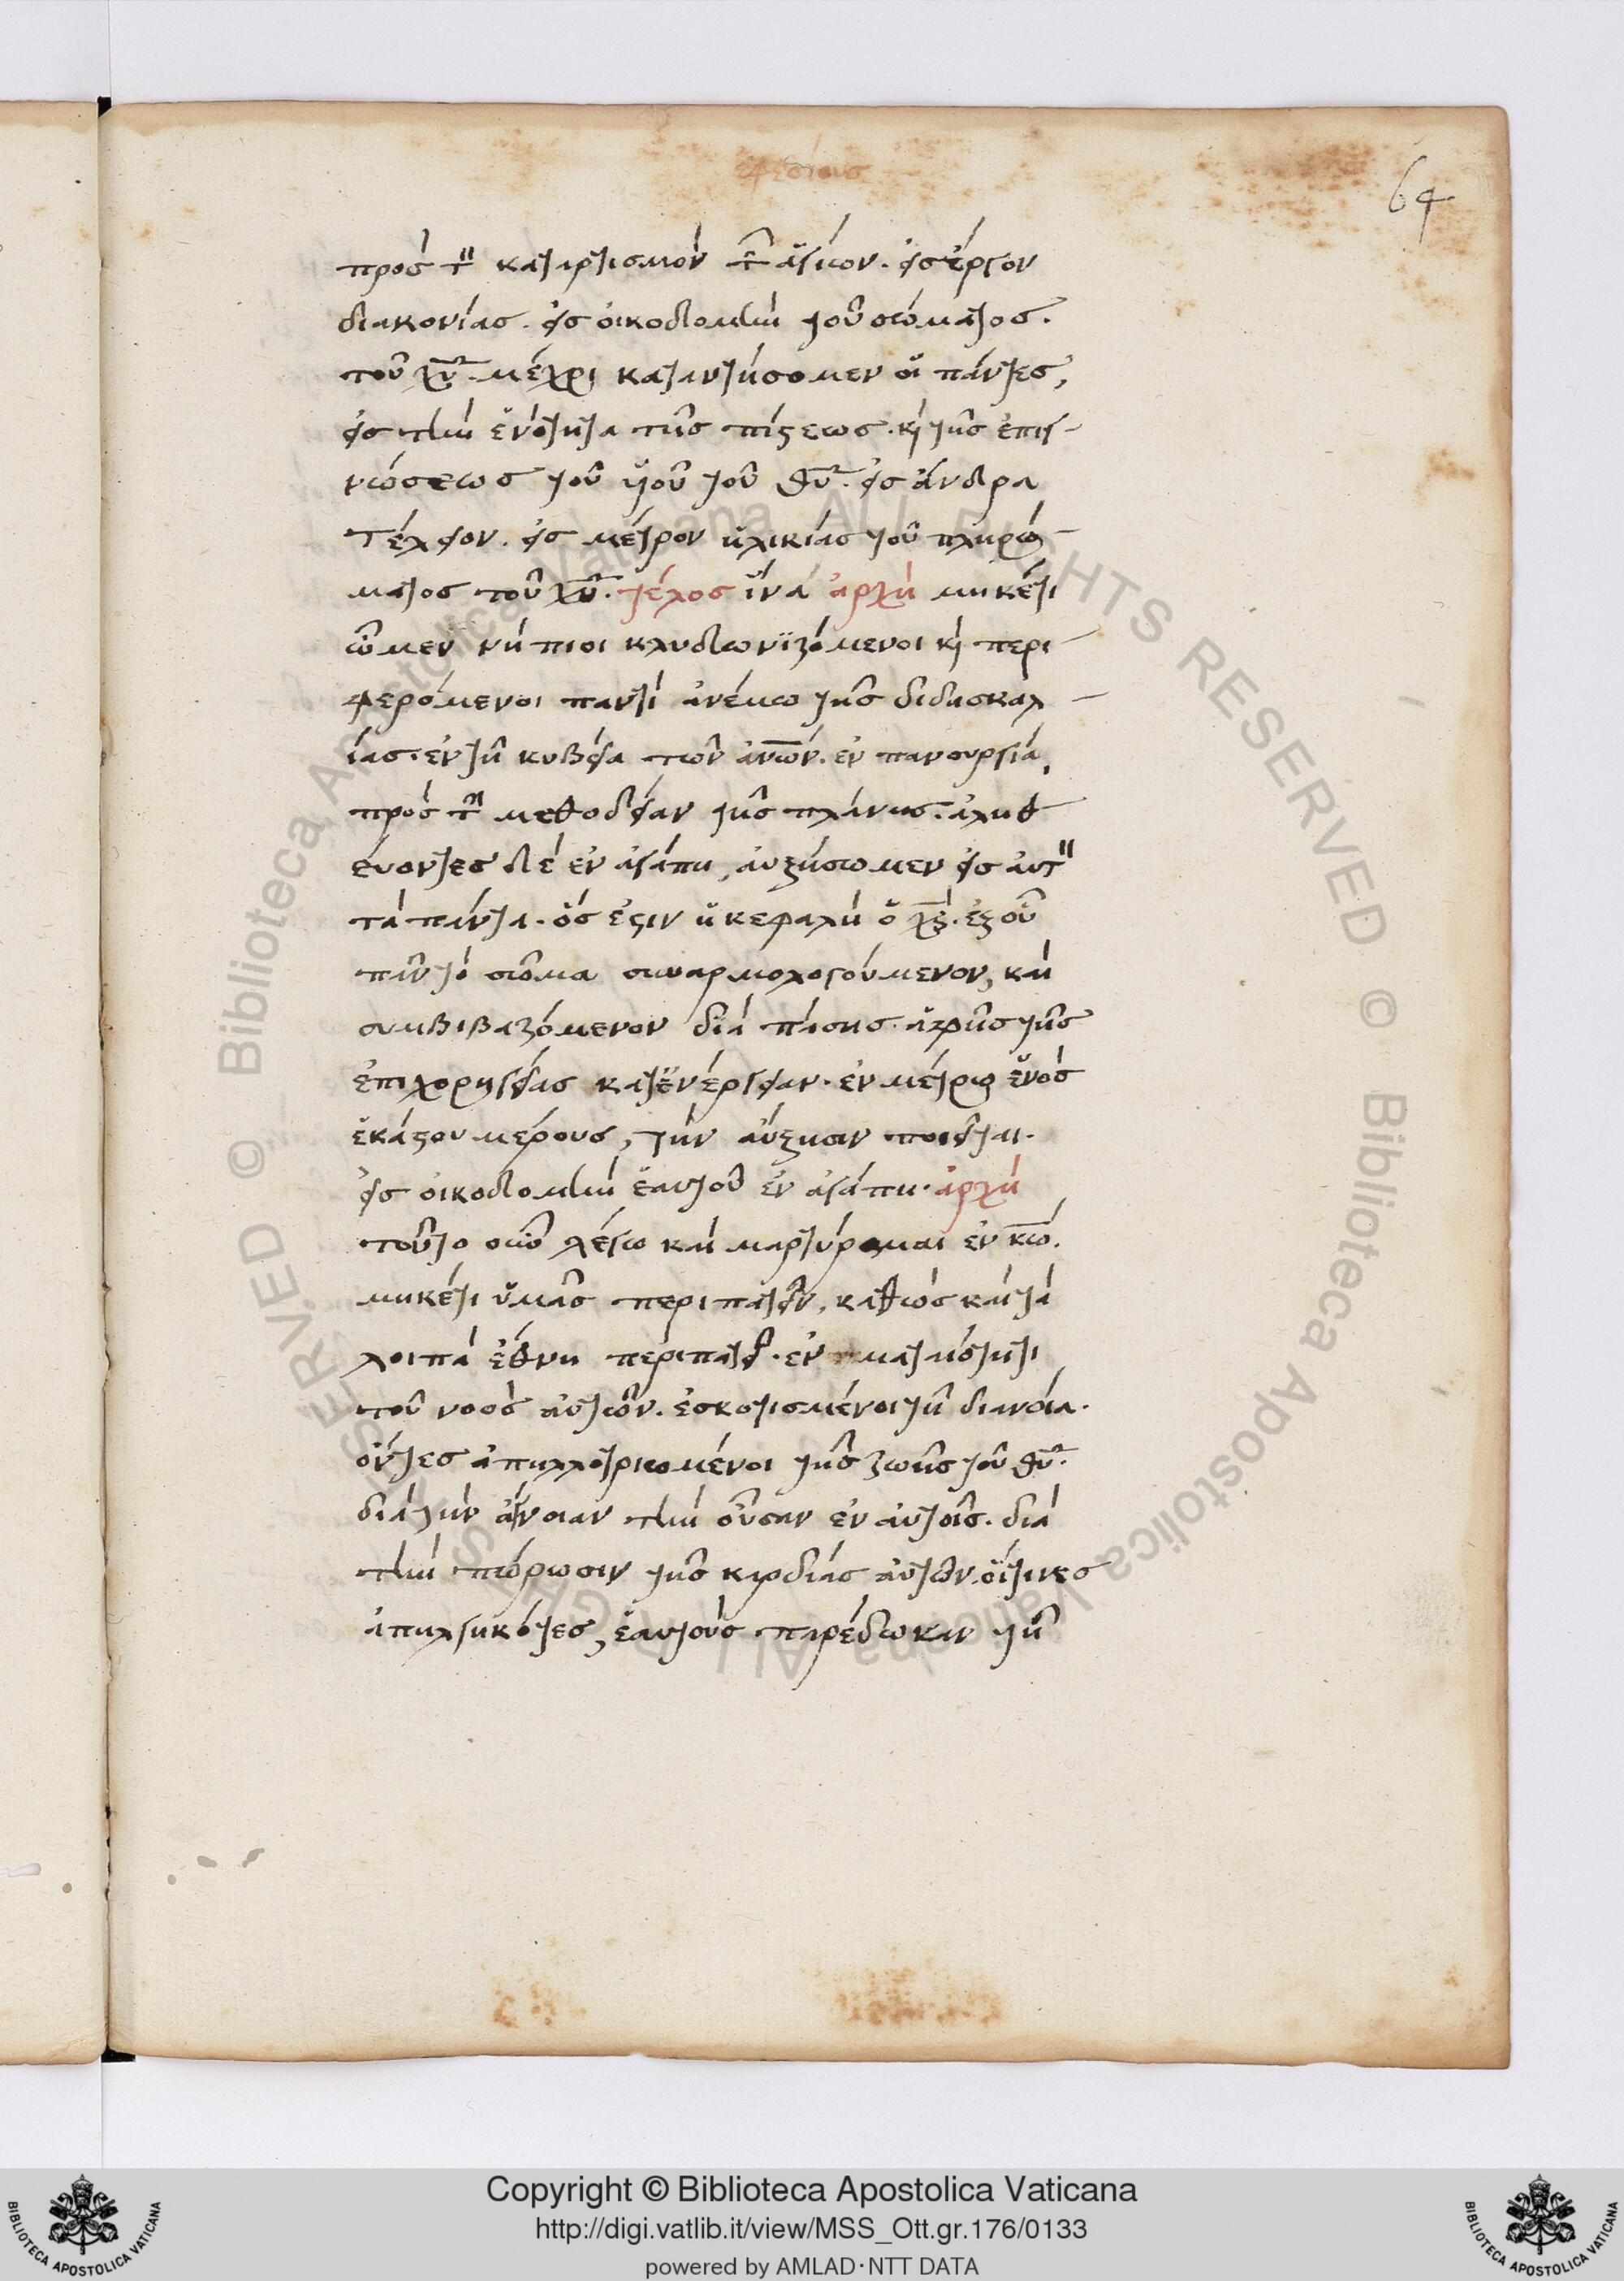 εφεσίους
64
πρὸς τ̏ καταρτισμὸν τ̑ ἁγίων. εἰς ἔργον
διακονίας. εἰς οἰκοδομὴν τοῦ σώματος.
τοῦ χυ̅. μέχρι καταντήσομεν οἱ πάντες,
εἰς τὴν ἑνότητα τῆς πίστεως. κὶ τῆς ἐπιγ-
νώσεως τοῦ ὑιοῦ τοῦ θυ̅. εἰς ἄνδρα
τέλειον. εἰς μέτρον ἡλικίας τοῦ πληρώ-
ματος τοῦ χυ̅. τέλος ἵνα ἀρχὴ μηκέτι
ὦμεν νήπιοι κλυδωνϊζόμενοι κὶ περι-
φερόμενοι παντὶ ἀνέμω τῆς διδασκαλ-
ίας. ἐν τῆ κυβεία τῶν ἀν̅ων. ἐν πανουργία,
πρὸς τ̏ μεθοδείαν τῆς πλάνης. ἀληθ-
εύοντες δὲ ἐν ἀγάπη, ἀυξήσωμεν εἰς ἀυτ̏
τὰ πάντα. ὅς ἐστιν ἡ κεφαλὴ ὁ χς̅. ἐξ οὗ
πᾶν τὸ σῶμα συναρμολογούμενον, καὶ
συμβιβαζόμενον διὰ πάσης ἁφῆς τῆς
ἐπιχορηγείας κατἐνέργειαν. ἐν μέτρω ἑνὸς
ἑκάστου μέρους, τὴν ἀύξησιν ποιεῖται.
εἰς οἰκοδομὴν ἑαυτοῦ ἐν ἀγάπη. ἀρχὴ
τοῦτο οὖν λέγω καὶ μαρτύρομαι ἐν κω̅.
μηκέτι ὑμᾶς περιπατεῖν, καθὼς καὶ τὰ
λοιπὰ ἔθνη περιπατεῖ. ἐν ματαιότητι
τοῦ νοὸς ἀυτῶν. ἐσκοτισμένοι τῆ διανοία.
ὄντες ἀπηλλοτριωμένοι τῆς ζωῆς τοῦ θυ̅.
διὰ τὴν ἄγνοιαν τὴν οὖσαν ἐν ἀυτοῖς. διὰ
τὴν πώρωσιν τῆς καρδίας ἀυτῶν. οἵτινες
ἀπηλγηκότες, ἑαυτοὺς παρέδωκαν τῆ
Copyright © Biblioteca Apostolica Vaticana
http://digi.vatlib.it/view/MSS_Ott.gr.176/0133
powered by AMLAD·NTT DATA
BIBLIOTECA APOSTOLICA VATICANA
BIBLIOTECA APOSTOLICA VATICANA
© Biblioteca Apostolica Vaticana ALL RIGHTS RESERVED © Biblioteca Apostolica Vaticana ALL RIGHTS RESERVED